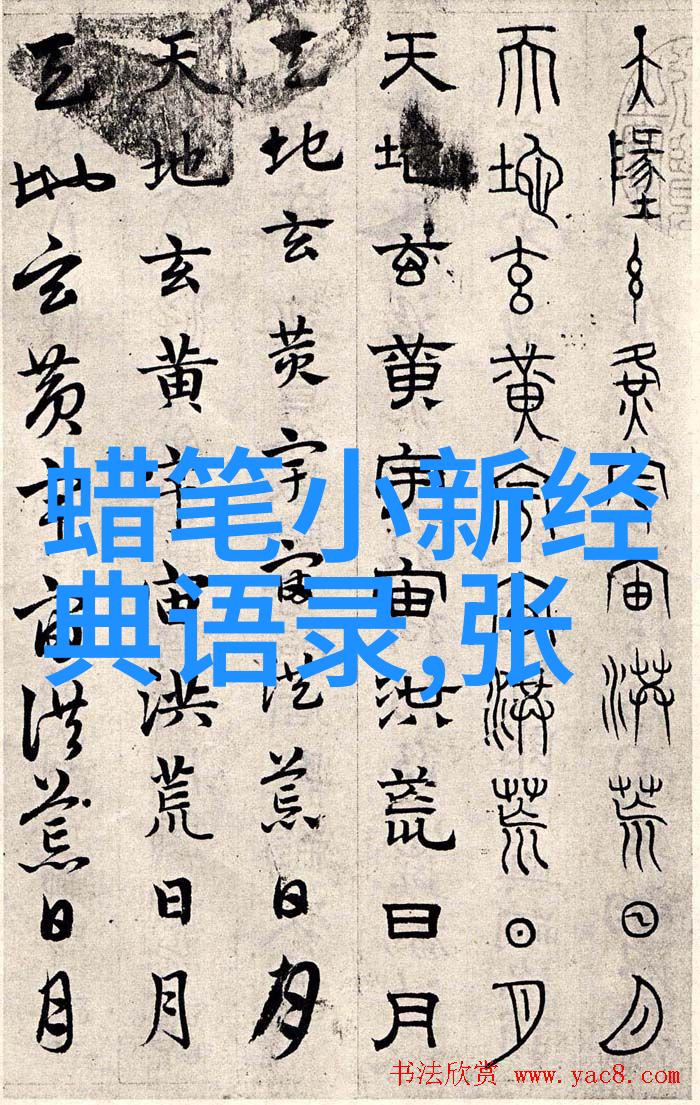 天墬玄黄宇宙洪荒日月
天地玄黄宇宙洪荒日月
天地玄黄宇宙洪荒日月
天地玄黄宇宙洪荒日月
天地玄黄宇宙洪荒日月
天地玄黄宇宙洪荒日月
蜡笔小新经
典语录,张
书法欣赏 www.yac8.com